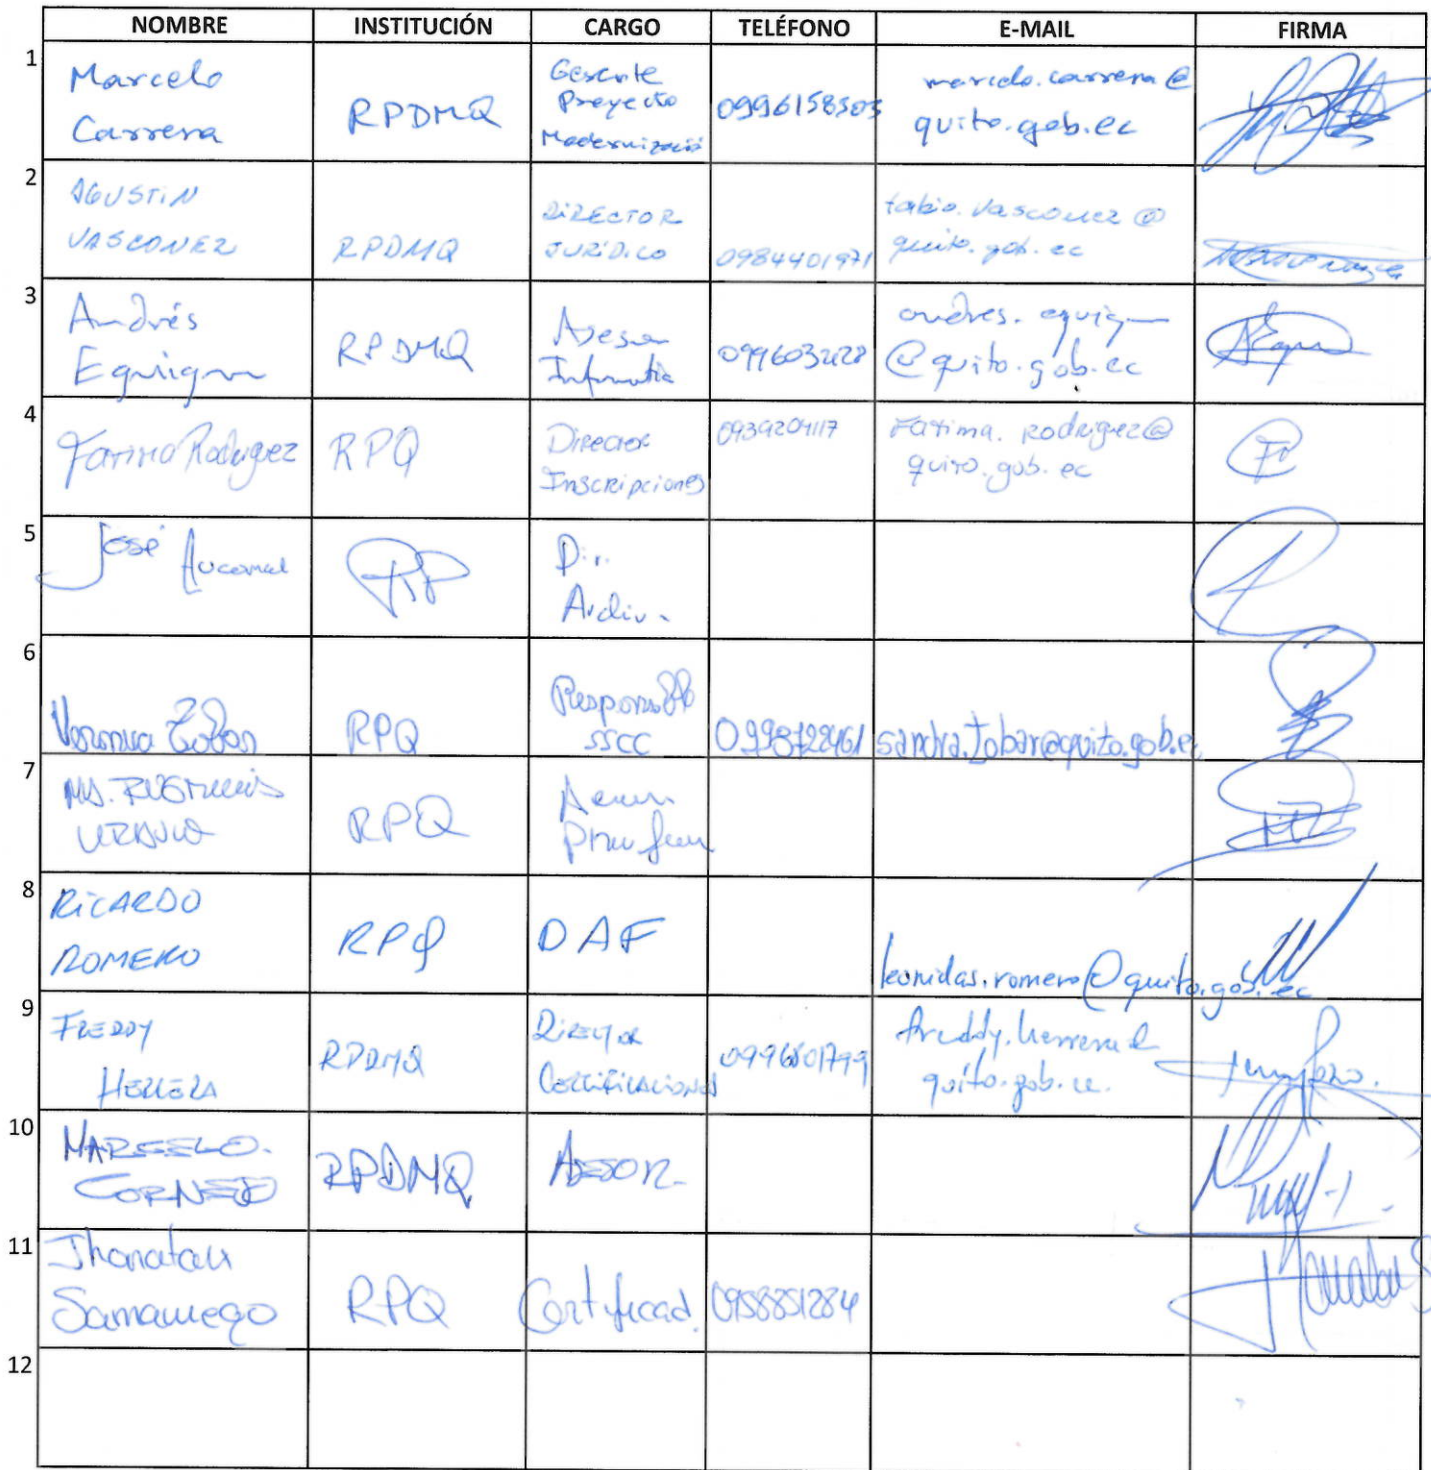 NOMBRE INSTITUCIÓN CARGO TELÉFONO E-MAIL FIRMA
1
Marcelo
Carrera
RPDMQ
Gerente
Proyecto
Modernizació
0996158503
marcelo.carrera@
quito.gob.ec
2
AGUSTIN
VASCONEZ
RPDMQ
DIRECTOR
JURÍDICO
0984401971
fabio.vasconez@
quito.gob.ec
3
Andrés
RPDMQ
Asesor
andres.
@quito.gob.ec
4
Fatima Rodriguez
RPQ
Director
Inscripciones
0939204117
Fatima.Rodriguez@
quito.gob.ec
5
José
RP
Dir.
6
Veronica Tobar
RPQ
Responsable
SSCC
sandra.tobar@quito.gob.ec
7
RPQ
8
RICARDO
ROMERO
RPQ
DAF
leonidas.romero@quito.gob.ec
9
FREDDY
HERRERA
RPDMQ
DIRECTOR
CERTIFICACIONES
freddy.herrera@
quito.gob.ec.
10
MARCELO.
CORNEJO
RPDMQ
ASESOR
11
Jhonatan
Samaniego
RPQ
Certificad.
0958851284
12